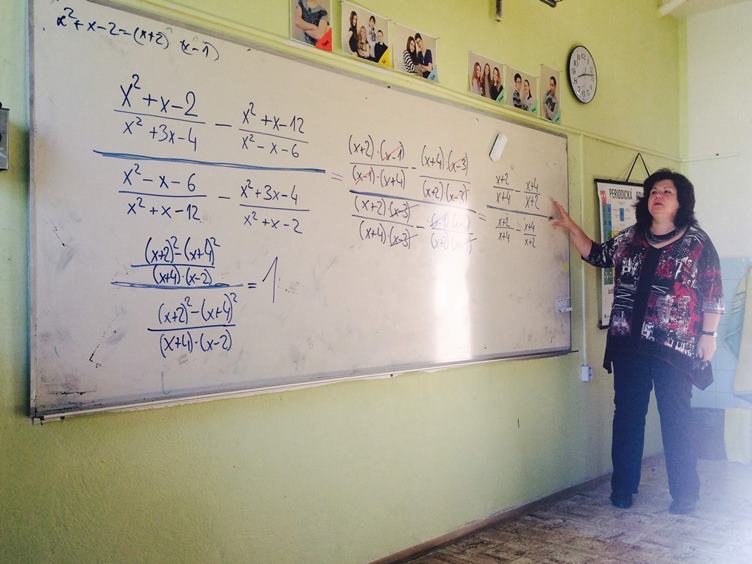 x² + x - 2 = (x+2) (x-1)
x² + x - 2 / x² + 3x - 4 - x² + x - 12 / x² - x - 6
x² - x - 6 / x² + x - 12 - x² + 3x - 4 / x² + x - 2
= (x+2)·(x-1) / (x-1)·(x+4) - (x+4)·(x-3) / (x+2)(x-2)
(x+2)·(x-3) / (x+4)·(x-3) -
= x+2 / x+4 - x+4 / x+2
x+2 / x+4 - x+4 / x+2
(x+2)² - (x+4)² / (x+4)·(x-2)
(x+2)² - (x+4)² / (x+4)·(x-2)
= 1
PERIODICKÁ